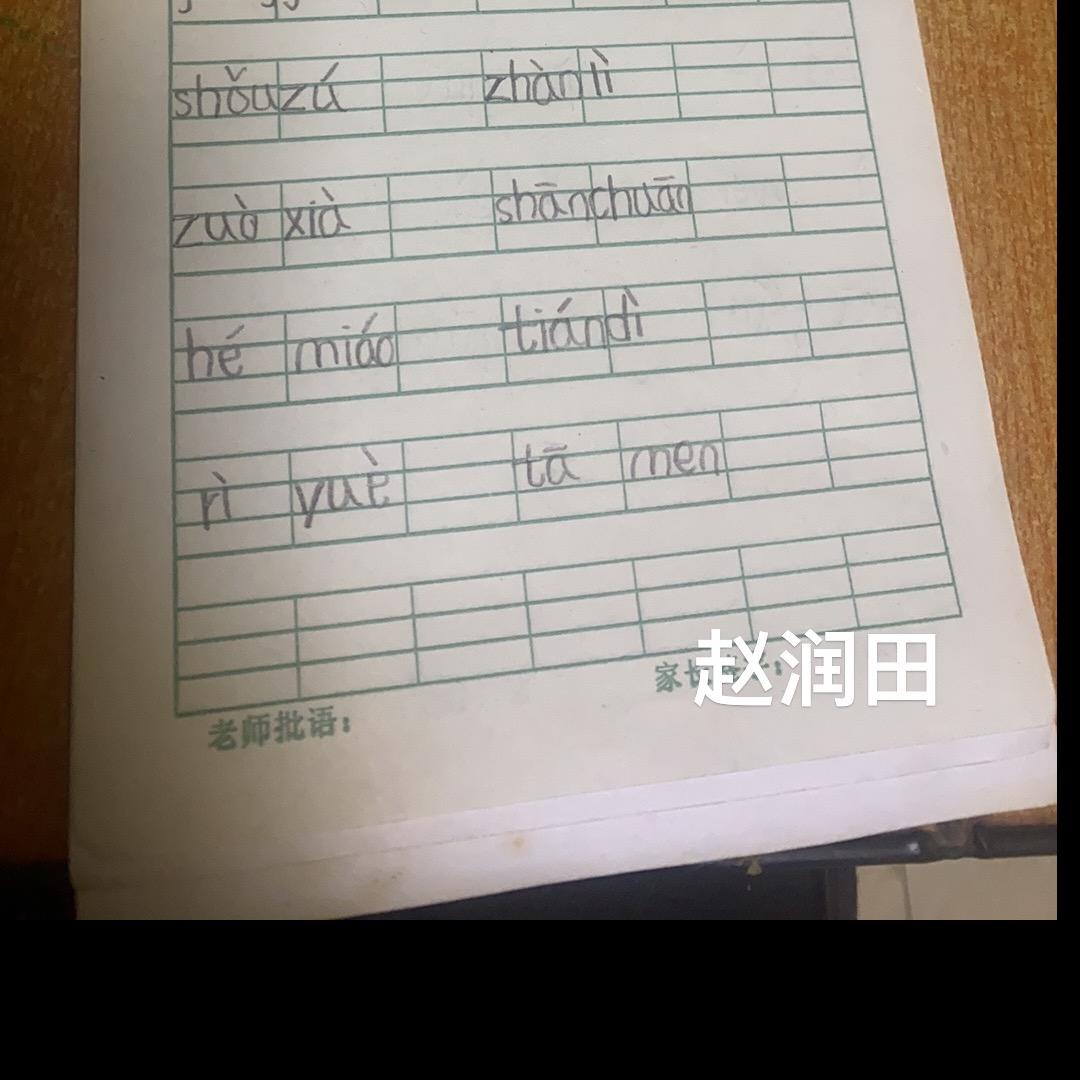 shǒu zá zhàn lì
zuò xià shān chuān
hé miáo tián dì
rì yuè tā men
赵润田
老师批语：